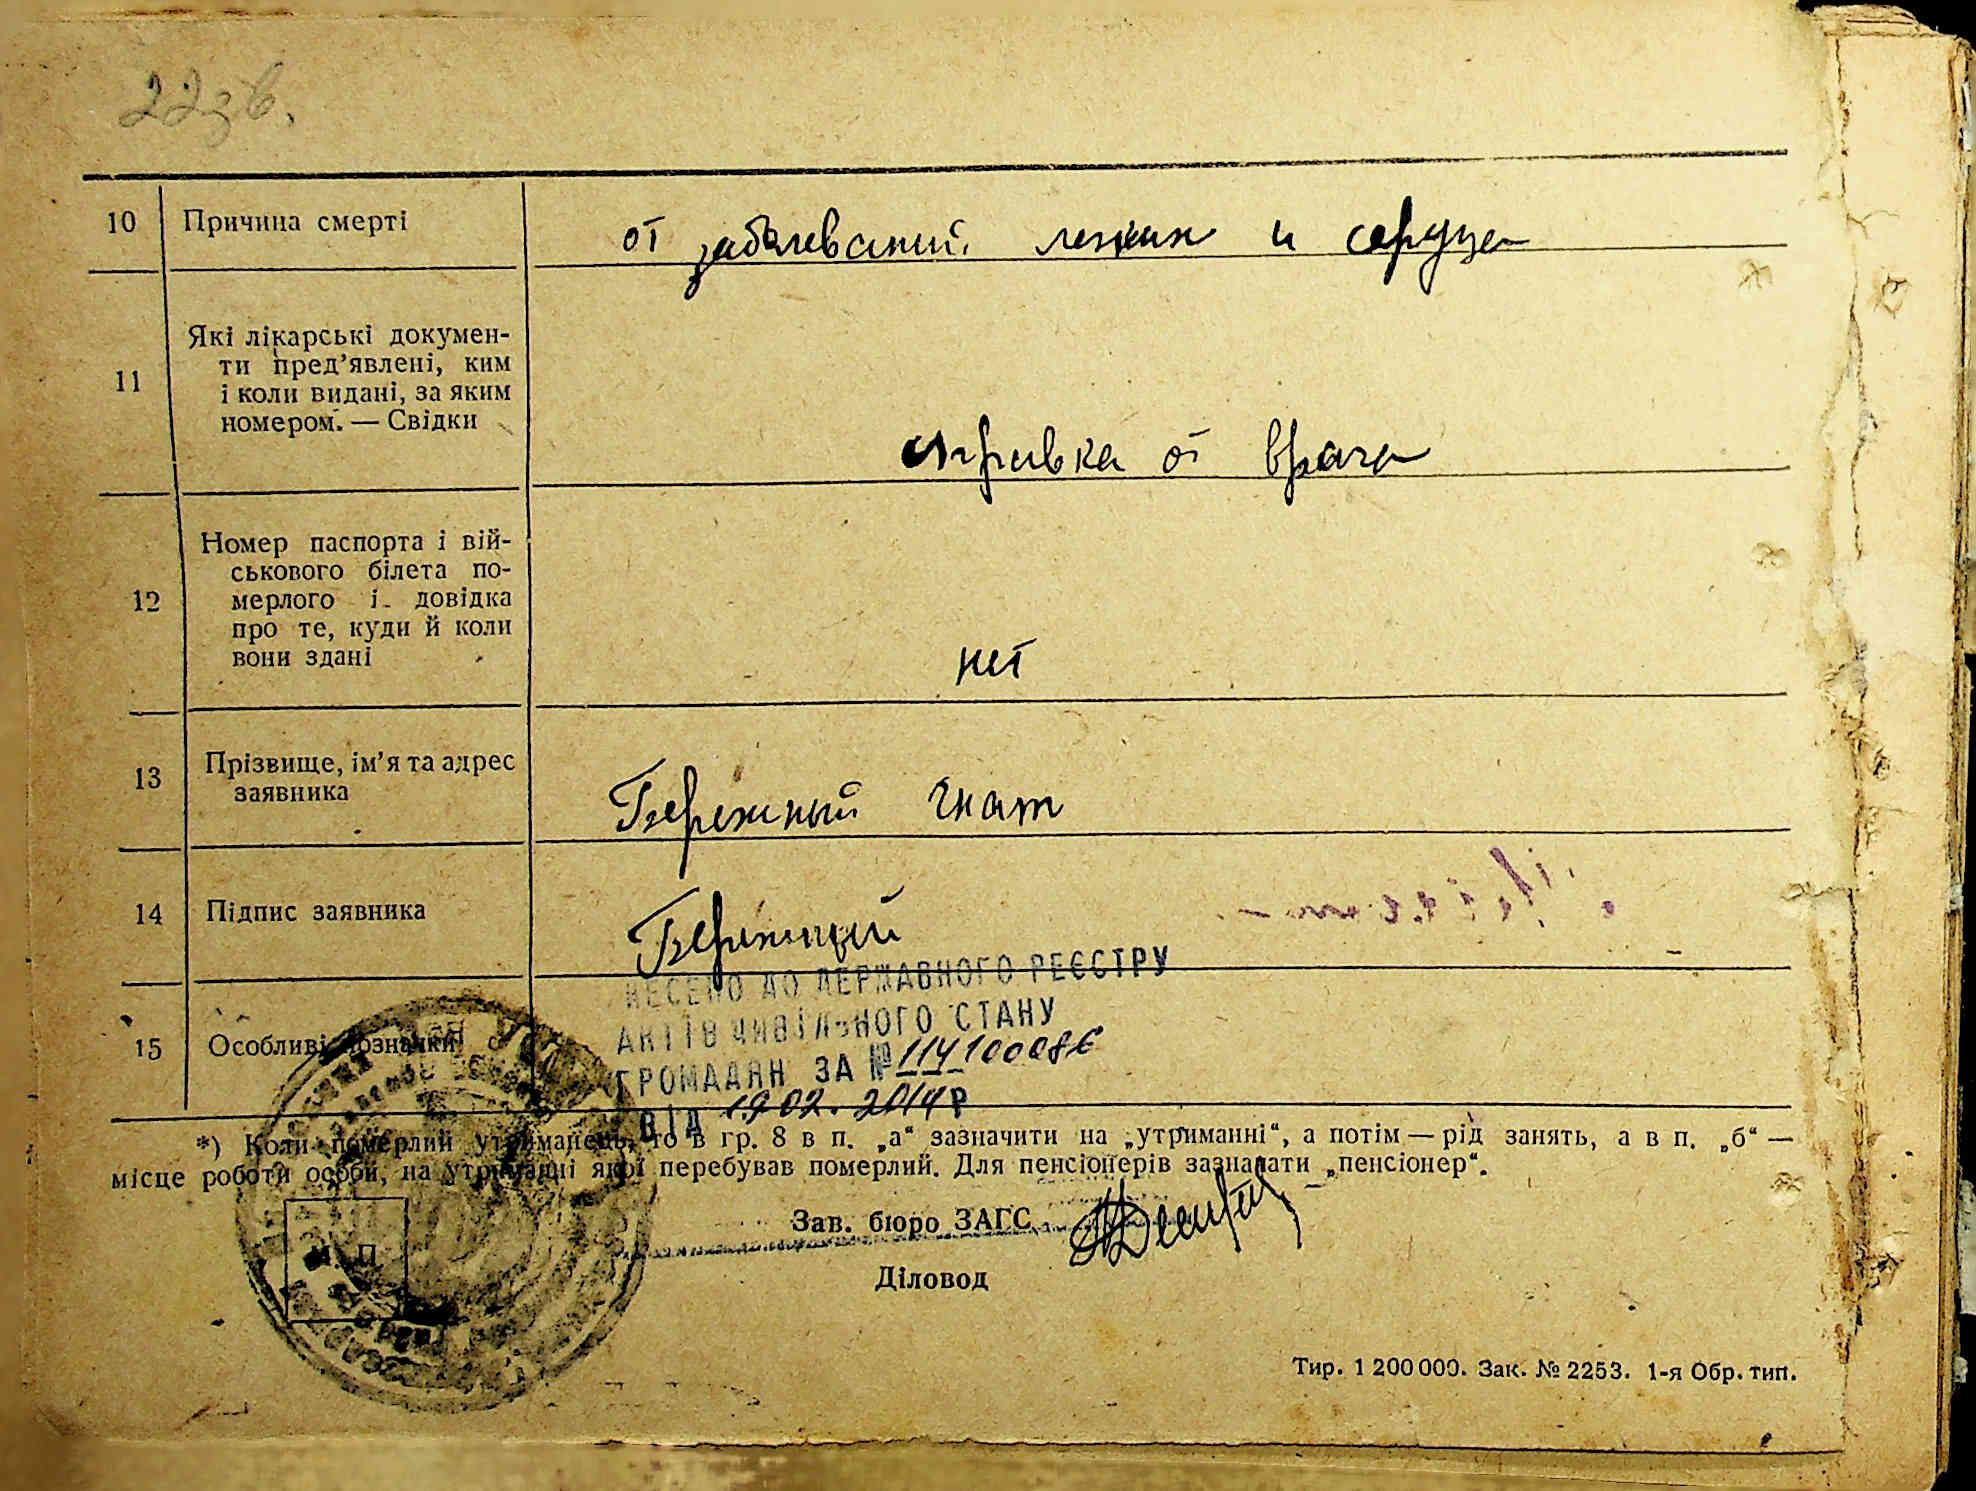 22зв.
10 Причина смерті от заболеваний легких и сердца
Які лікарські докумен-
ти пред’явлені, ким
11 і коли видані, за яким
номером. — Свідки
справка от врача
Номер паспорта і вій-
ськового білета по-
12 мерлого і довідка
про те, куди й коли
вони здані
нет
13 Прізвище, ім’я та адрес
заявника
Бережный Гнат
14 Підпис заявника Бережный
ВНЕСЕНО ДО ДЕРЖАВНОГО РЕЄСТРУ
АКТІВ ЦИВІЛЬНОГО СТАНУ
15 Особливі позначки
ГРОМАДЯН ЗА № 114100086
ВІД 19.02.2014 Р
*) Коли померлий утриманець, то в гр. 8 в п. „а“ зазначити на „утриманні“, а потім — рід занять, а в п. „б“ —
місце роботи особи, на утриманні якої перебував померлий. Для пенсіонерів зазначати „пенсіонер“.
Зав. бюро ЗАГС
М. П.
Діловод
Тир. 1 200 000. Зак. № 2253. 1-я Обр. тип.